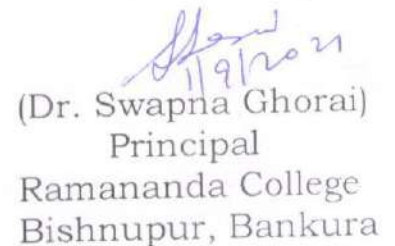 1/9/2021
(Dr. Swapna Ghorai)
Principal
Ramananda College
Bishnupur, Bankura